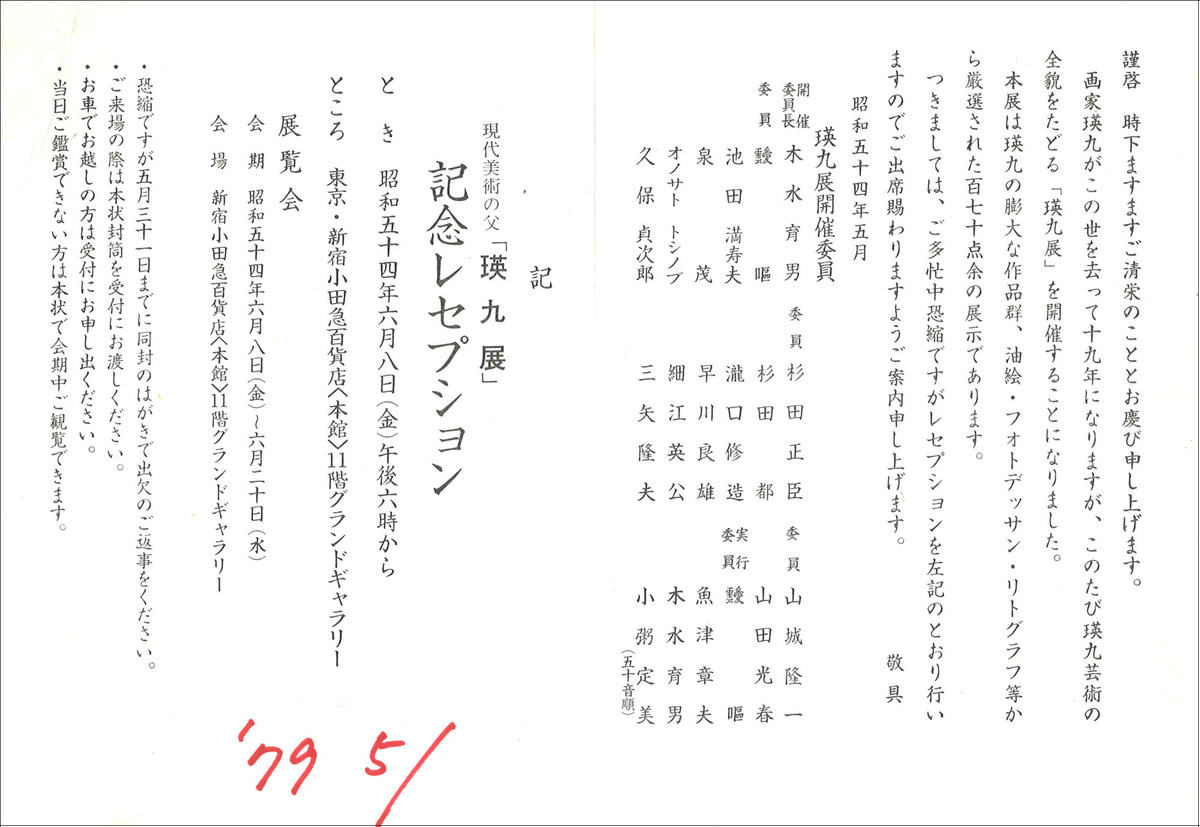 謹啓 時下ますますご清栄のこととお慶び申し上げます。
画家瑛九がこの世を去って十九年になりますが、このたび瑛九芸術の
全貌をたどる「瑛九展」を開催することになりました。
本展は瑛九の膨大な作品群、油絵・フォトデッサン・リトグラフ等か
ら厳選された百七十点余の展示であります。
つきましては、ご多忙中恐縮ですがレセプションを左記のとおり行い
ますのでご出席賜わりますようご案内申し上げます。
敬具
昭和五十四年五月
瑛九展開催委員
開催委員長 木水育男
委員 靉嘔
池田満寿夫
泉茂
オノサトトシノブ
久保貞次郎
委員 杉田正臣
杉田都
瀧口修造
早川良雄
細江英公
三矢隆夫
委員 山城隆一
山田光春
実行委員 靉嘔
魚津章夫
木水育男
小粥定美
(五十音順)
記
現代美術の父「瑛九展」
記念レセプション
とき 昭和五十四年六月八日(金)午後六時から
ところ 東京・新宿小田急百貨店〈本館〉11階グランドギャラリー
展覧会
会期 昭和五十四年六月八日(金)〜六月二十日(水)
会場 新宿小田急百貨店〈本館〉11階グランドギャラリー
・恐縮ですが五月三十一日までに同封のはがきで出欠のご返事をください。
・ご来場の際は本状封筒を受付にお渡しください。
・お車でお越しの方は受付にお申し出ください。
・当日ご鑑賞できない方は本状で会期中ご観覧できます。
'79 5/